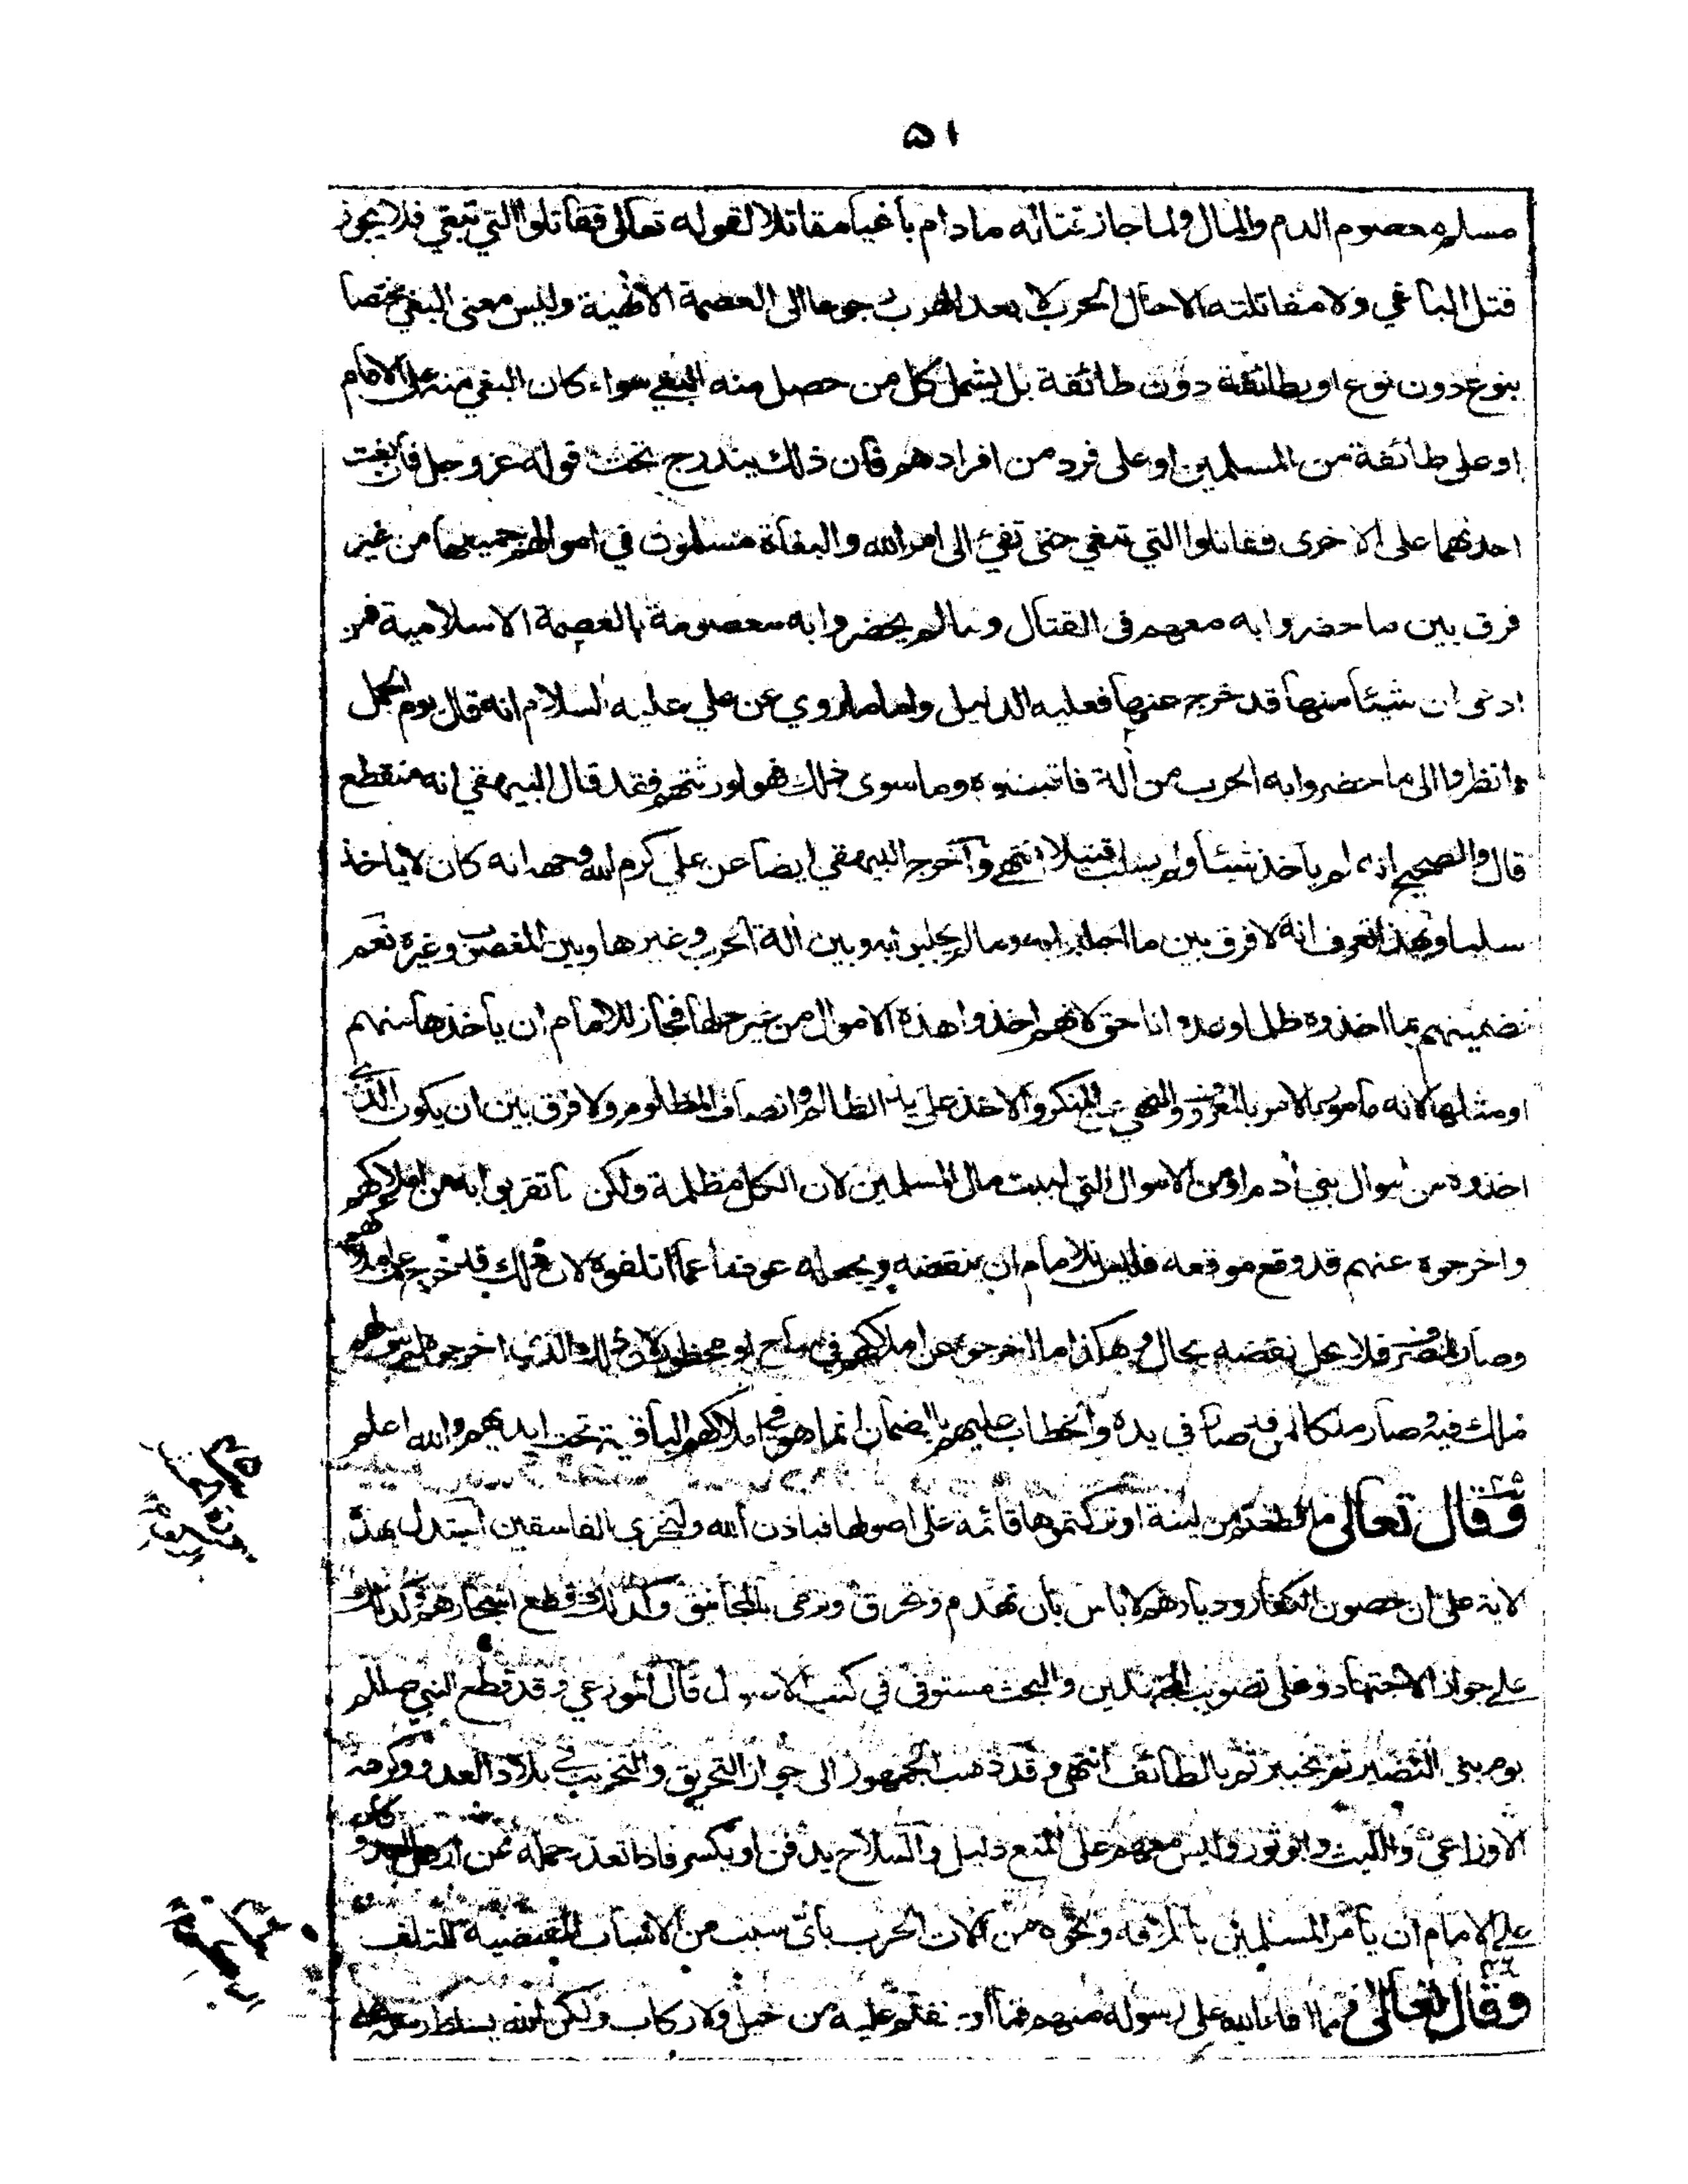 ٥١
مسلم معصوم الدم والمال ولما جاز قتاله ما دام باغيا مقاتلا لقوله تعالى فقاتلوا التي تبغي فلا يجوز
قتل الباغي ولا مقاتلته الا حال الحرب لا بعد الهرب رجوعا الى العصمة الاصلية وليس معنى البغي مختصا
بنوع دون نوع او بطائفة دون طائفة بل يشمل كل من حصل منه البغي سواء كان البغي منه على الامام
او على طائفة من المسلمين او على فرد من افرادهم فان ذلك يندرج تحت قوله عز وجل فان بغت
احدٰهما على الاخرى فقاتلوا التي تبغي حتى تفئ الى امر الله والبغاة مسلمون في اموالهم جميعها من غير
فرق بين ما حضروا به معهم في القتال وما لم يحضروا به معصومة بالعصمة الاسلامية فمن
ادعى ان شيئا منها قد خرج عنها فعليه الدليل واما ما روي عن علي عليه السلام انه قال يوم الجمل
وانظروا الى ما حضروا به الحرب من آلة فاقبضوه وما سوى ذلك فهو لورثتهم فقد قال البيهقي انه منقطع
قال والصحيح انه لم ياخذ شيئا ولم يسلب قتيلا انتهى واخرج البيهقي ايضا عن علي كرم الله وجهه انه كان لا ياخذ
سلبا وبهذا تعرف انه لا فرق بين ما اجلبوا به وما لم يجلبوا به وبين آلة الحرب وغيرها وبين المغصوب وغيره نعم
تضمينهم بما اخذوه ظلما وعدوانا حق لانهم اخذوا هذه الاموال من غير حلها فجاز للامام ان يأخذها منهم
او مثلها لانه مأمور بالامر بالمعروف والنهي عن المنكر والاخذ على يد الظالم وانصاف المظلوم ولا فرق بين ان يكون الذي
اخذوه من اموال بني آدم او من الاموال التي لبيت مال المسلمين لان الكل مظلمة ولكن ما تقربوا به من املاكهم
واخرجوه عنهم قد وقع موقعه فليس للامام ان ينقضه ويجعله عوضا عما اتلفوه لان ذلك قد خرج عن املاكهم
وصار فلا يحل نقضه بحال وهكذا ما اخرجوه عن املاكهم في مباح او محظور لان ذلك الذي اخرجوه
ملك فيه وصار ملكا لمن قد صار في يده والخطاب عليهم بالضمان انما هو في املاكهم الباقية تحت ايديهم والله اعلم
وقال تعالى ما قطعتم من لينة او تركتموها قائمة على اصولها فباذن الله وليخزي الفاسقين استدل بهذه
الاية على ان حصون الكفار وديارهم لا باس بان تهدم وتحرق وترمى بالمجانيق وكذلك قطع اشجارهم وكذلك
على جواز الاجتهاد وعلى تصويب المجتهدين والبحث مستوفى في كتب الاصول قال الموزعي وقد قطع النبي صللم
يوم بني النضير ثم بخيبر ثم بالطائف انتهى وقد ذهب الجمهور الى جواز التحريق والتخريب في بلاد العدو وكرهه
الاوزاعي والليث وابو ثور وليس معهم على المنع دليل والسلاح يدفن او يكسر فاذا تعذر حمله عن ارض العدو كان
على الامام ان يأمر المسلمين باتلافه ونحوه من آلات الحرب بأي سبب من الاسباب المقتضية للتلف
وقال تعالى وما افاء الله على رسوله منهم فما اوجفتم عليه من خيل ولا ركاب ولكن الله يسلط رسله